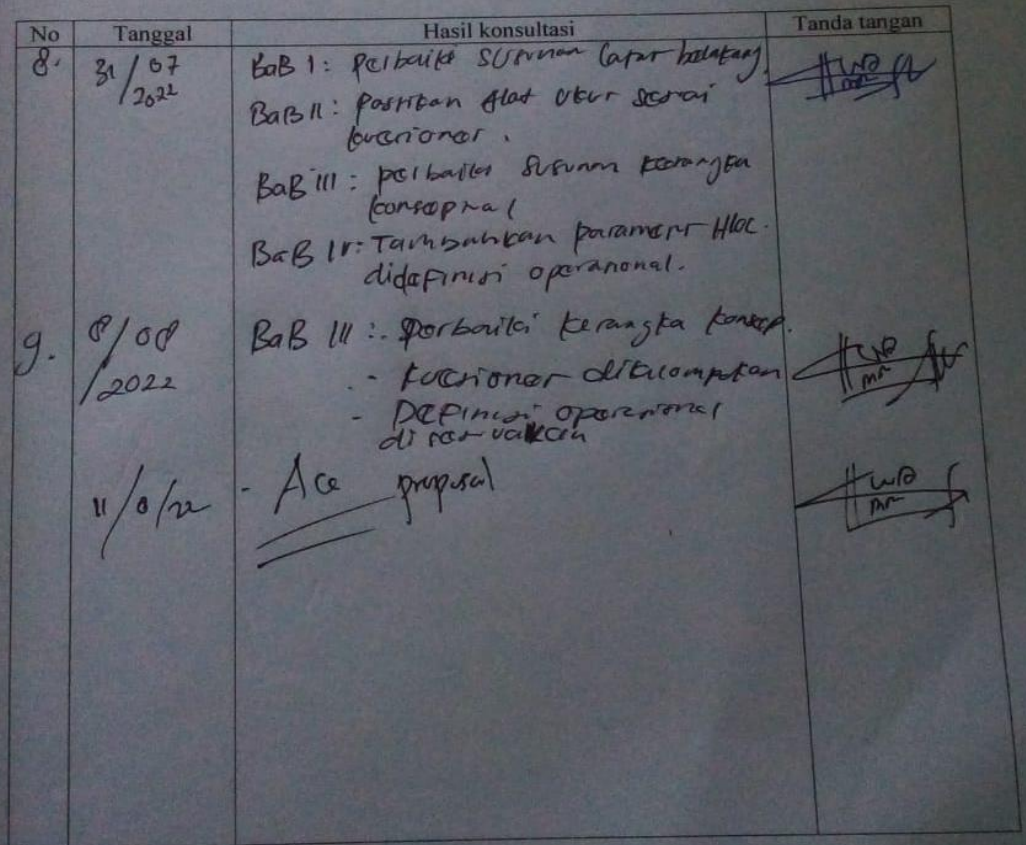 No Tanggal Hasil konsultasi Tanda tangan
8. 31/07/2022 BaB I: Perbaiki susunan latar belakang
BaB II: Pastikan Alat Ukur sesuai
kuesioner.
BaB III: perbaiki susunan kerangka
konseptual
BaB IV: Tambahkan parameter HLOC.
didefinisi operasional.
9. 8/08/2022 BaB III: Perbaiki kerangka konsep.
- kuesioner dikelompokan
- Definisi operasional
11/8/22 - Acc proposal